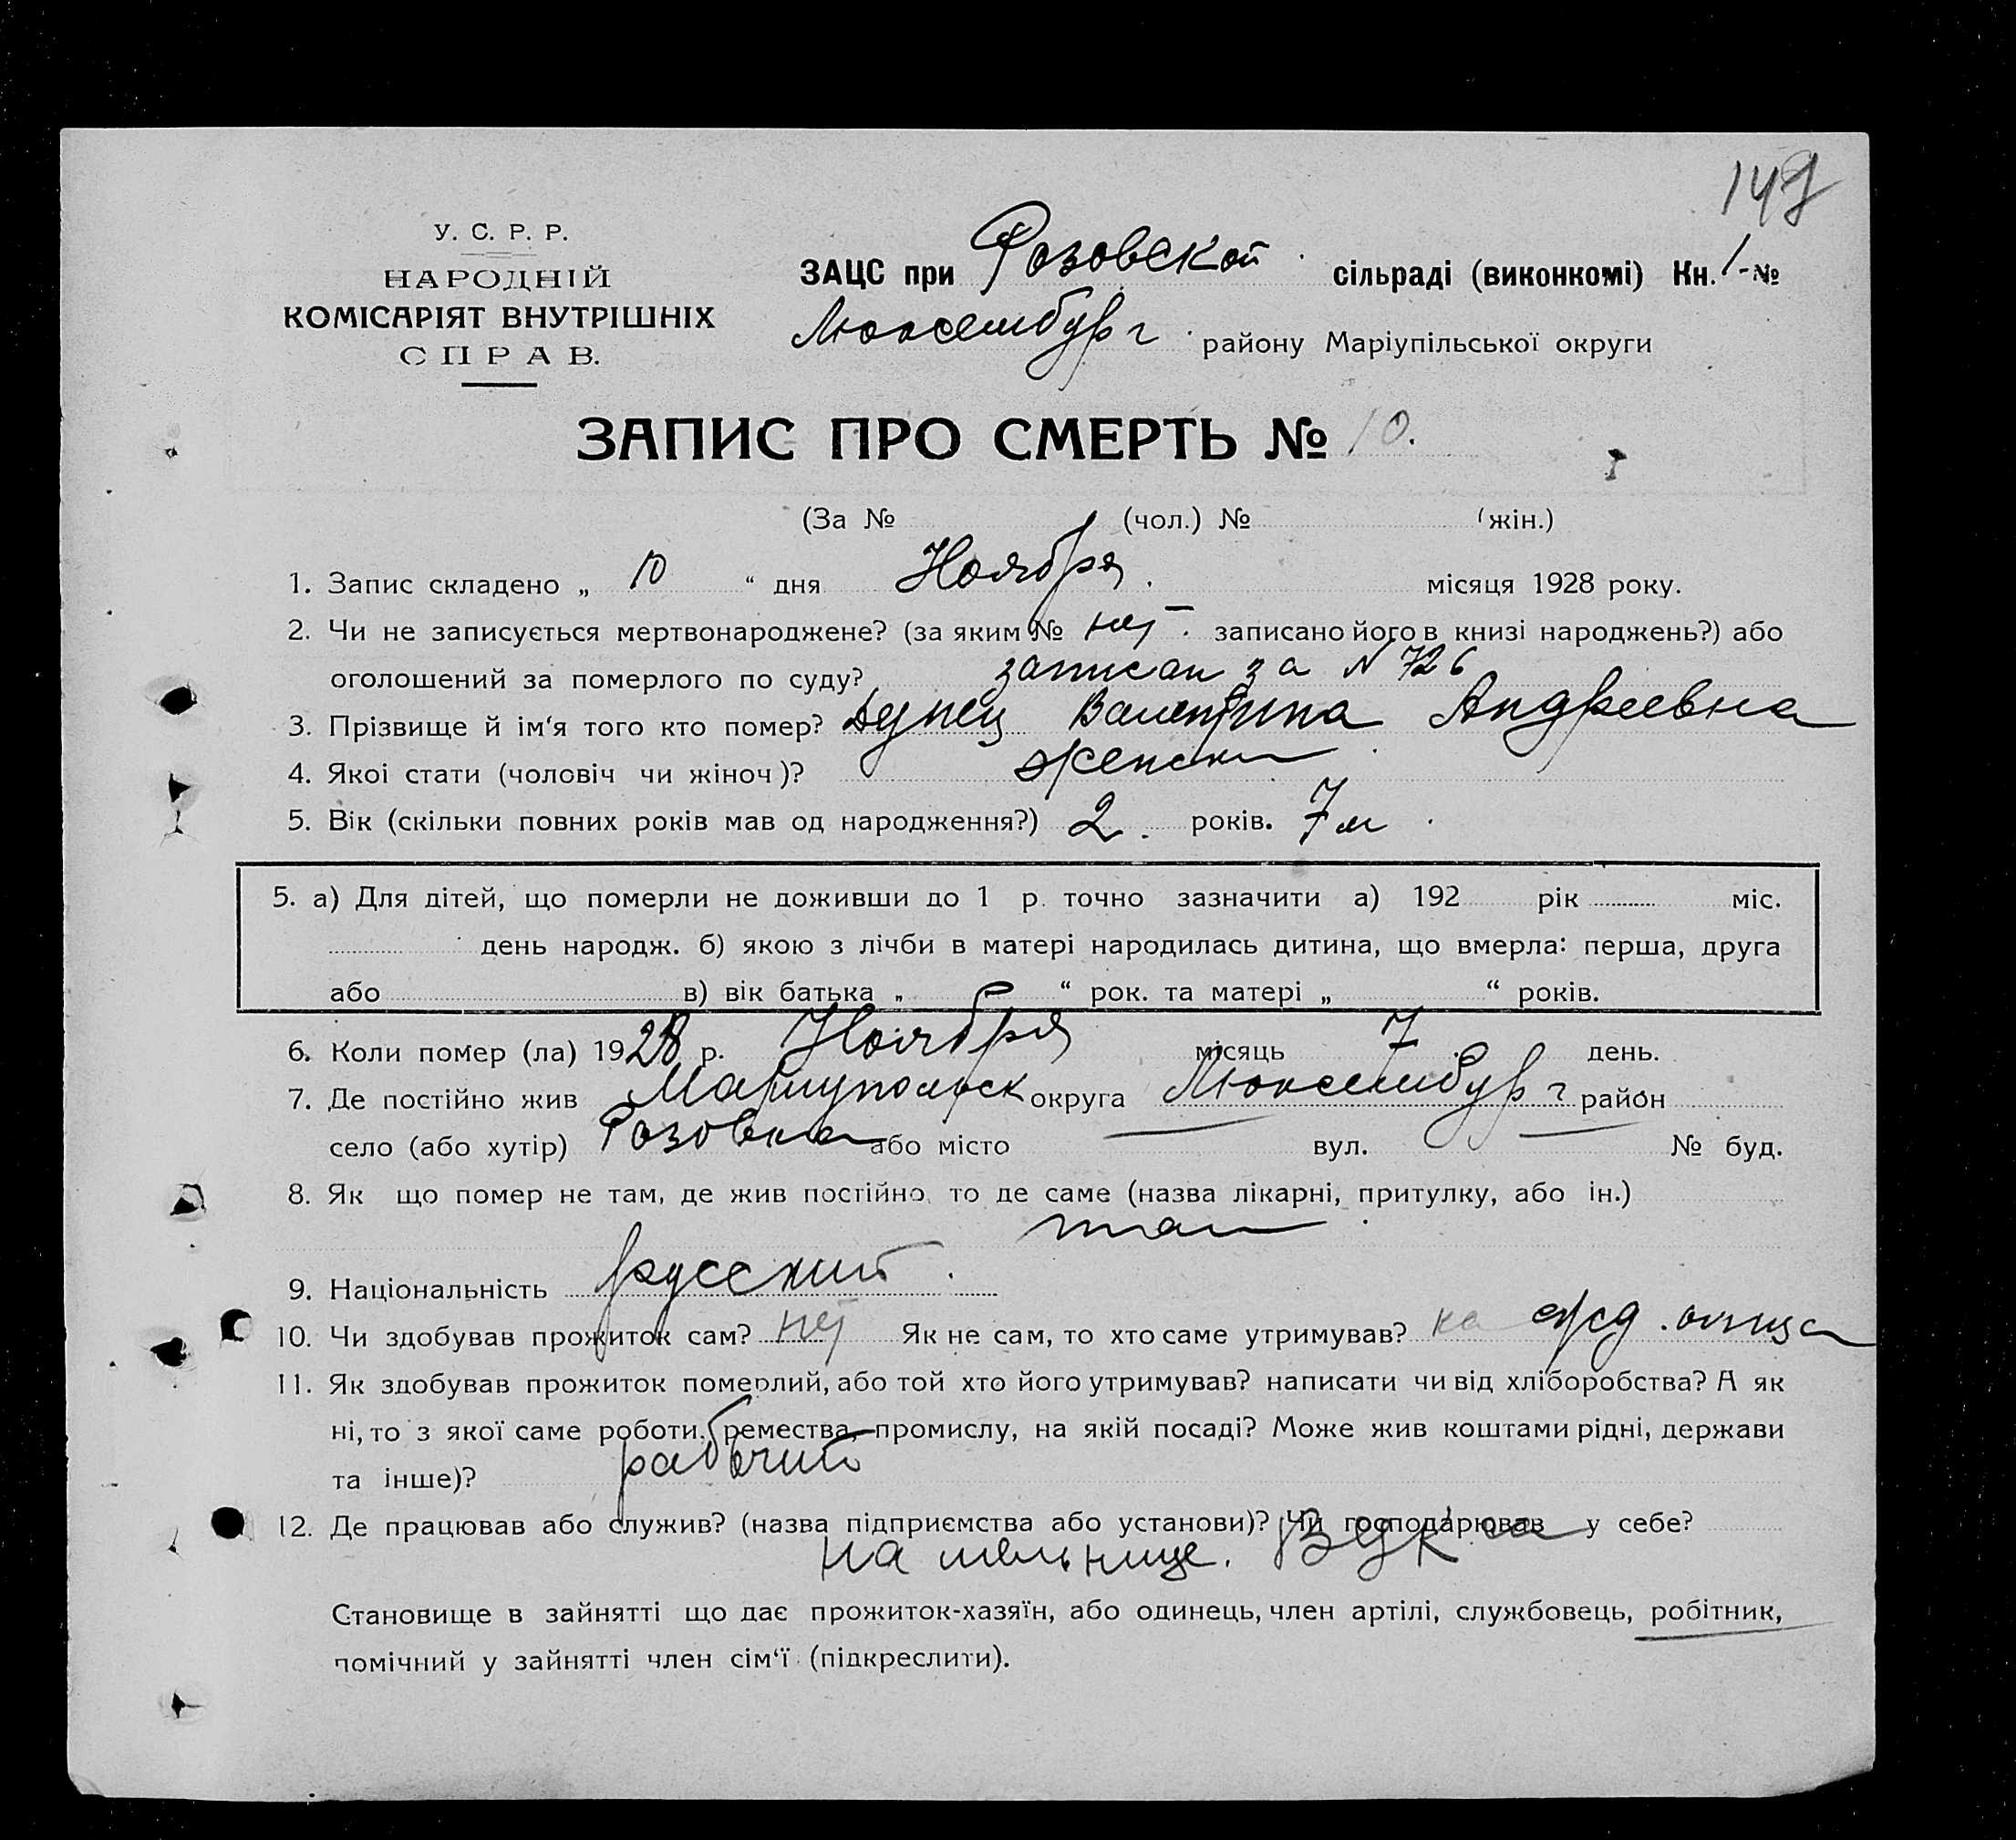 147
У. С. Р. Р.
НАРОДНІЙ
КОМІСАРІЯТ ВНУТРІШНІХ
СПРАВ.
ЗАЦС при Розовской сільраді (виконкомі) Кн. 1 - №
Люксембург району Маріупільської округи
ЗАПИС ПРО СМЕРТЬ № 10.
(За № (чол.) № (жін.)
1. Запис складено „ 10 “ дня Ноября місяця 1928 року.
2. Чи не записується мертвонароджене? (за яким № нет. записано його в книзі народжень?) або
оголошений за померлого по суду? записан за N 726
3. Прізвище й ім‘я того кто помер? Валентина Андреевна
4. Якоі стати (чоловіч чи жіноч)? женски
5. Вік (скільки повних років мав од народження?) 2. років. 7 м.
5. а) Для дітей, що померли не доживши до 1 р. точно зазначити а) 192 рік міс.
день народж. б) якою з лічби в матері народилась дитина, що вмерла: перша, друга
або в) вік батька „ “ рок. та матері „ “ років.
6. Коли помер (ла) 1928 р. Ноября місяць 7 день.
7. Де постійно жив Мариупольск округа Люксембург район
село (або хутір) Розовка або місто — вул. — № буд.
8. Як що помер не там, де жив постійно, то де саме (назва лікарні, притулку, або ін.)
там
9. Національність русский.
10. Чи здобував прожиток сам? нет Як не сам, то хто саме утримував? на сред. отца
11. Як здобував прожиток померлий, або той хто його утримував? написати чи від хліборобства? А як
ні, то з якої саме роботи, ремества, промислу, на якій посаді? Може жив коштами рідні, держави
та інше)? рабочий
12. Де працював або служив? (назва підприємства або установи)? Чи господарював у себе?
на мельнице.
Становище в зайнятті що дає прожиток-хазяїн, або одинець, член артілі, службовець, робітник,
помічний у зайнятті член сім‘ї (підкреслити).